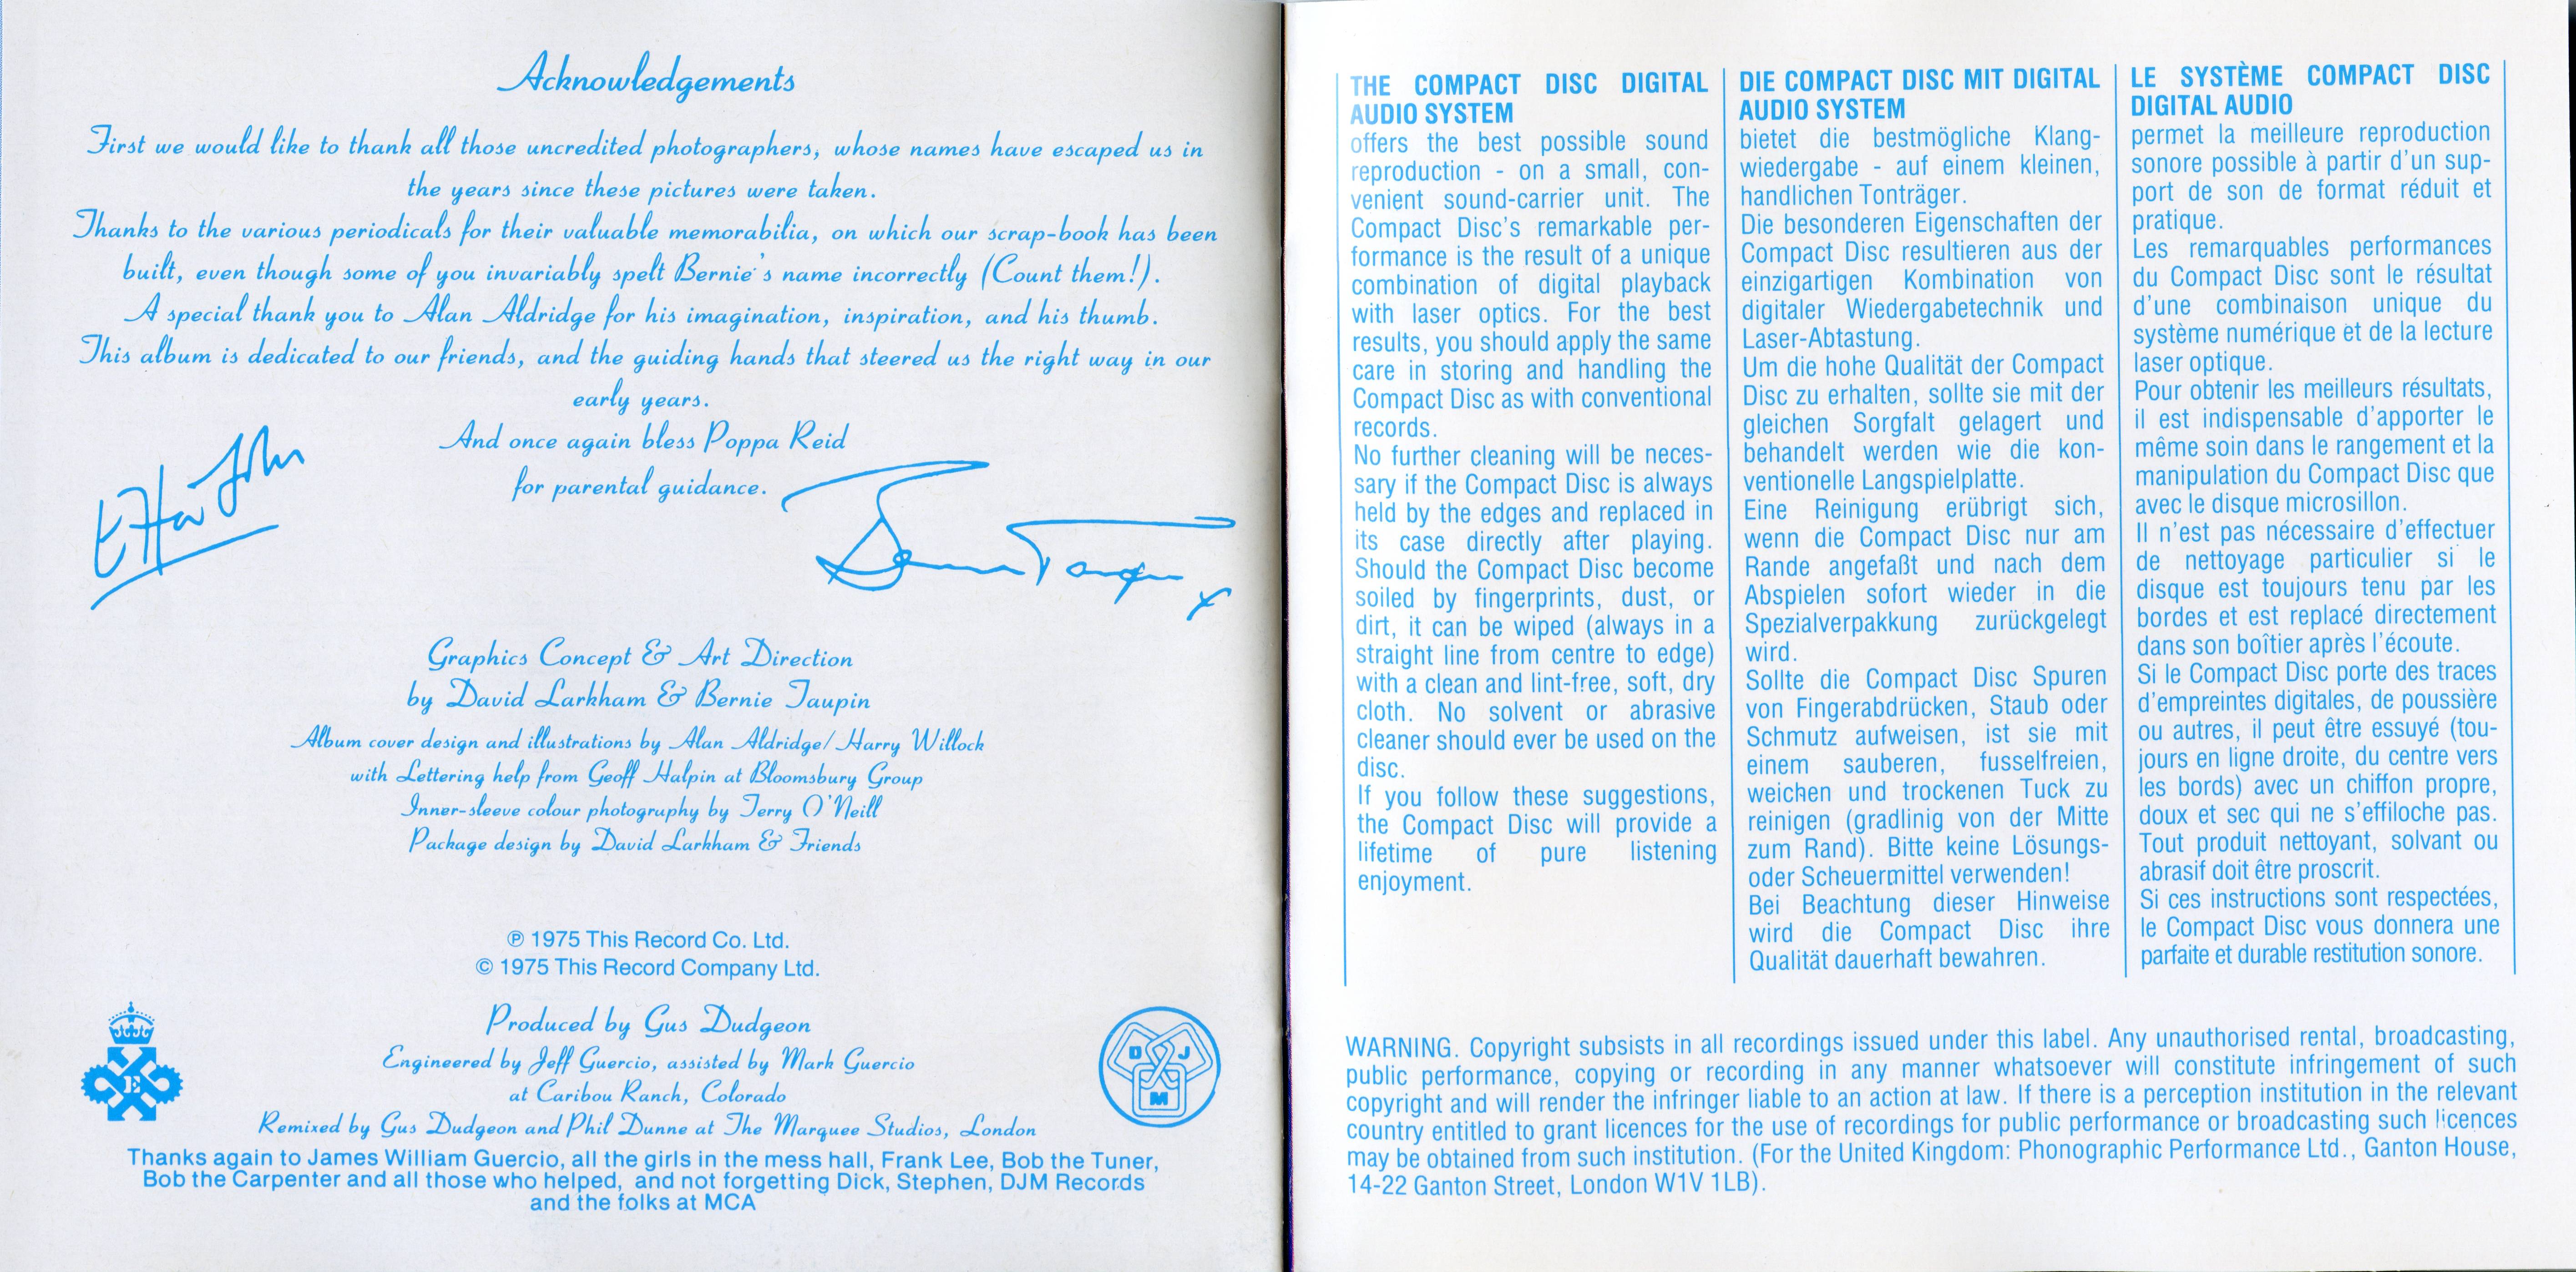 Acknowledgements
First we would like to thank all those uncredited photographers, whose names have escaped us in
the years since these pictures were taken.
Thanks to the various periodicals for their valuable memorabilia, on which our scrap-book has been
built, even though some of you invariably spelt Bernie's name incorrectly (Count them!).
A special thank you to Alan Aldridge for his imagination, inspiration, and his thumb.
This album is dedicated to our friends, and the guiding hands that steered us the right way in our
early years.
And once again bless Poppa Reid
for parental guidance.
Elton John
Graphics Concept & Art Direction
by David Larkham & Bernie Taupin
Album cover design and illustrations by Alan Aldridge/Harry Willock
with Lettering help from Geoff Halpin at Bloomsbury Group
Inner-sleeve colour photography by Terry O'Neill
Package design by David Larkham & Friends
℗ 1975 This Record Co. Ltd.
© 1975 This Record Company Ltd.
Produced by Gus Dudgeon
Engineered by Jeff Guercio, assisted by Mark Guercio
at Caribou Ranch, Colorado
Remixed by Gus Dudgeon and Phil Dunne at The Marquee Studios, London
E
D J
M
Thanks again to James William Guercio, all the girls in the mess hall, Frank Lee, Bob the Tuner,
Bob the Carpenter and all those who helped, and not forgetting Dick, Stephen, DJM Records
and the folks at MCA
THE COMPACT DISC DIGITAL
AUDIO SYSTEM
offers the best possible sound
reproduction - on a small, con-
venient sound-carrier unit. The
Compact Disc's remarkable per-
formance is the result of a unique
combination of digital playback
with laser optics. For the best
results, you should apply the same
care in storing and handling the
Compact Disc as with conventional
records.
No further cleaning will be neces-
sary if the Compact Disc is always
held by the edges and replaced in
its case directly after playing.
Should the Compact Disc become
soiled by fingerprints, dust, or
dirt, it can be wiped (always in a
straight line from centre to edge)
with a clean and lint-free, soft, dry
cloth. No solvent or abrasive
cleaner should ever be used on the
disc.
If you follow these suggestions,
the Compact Disc will provide a
lifetime of pure listening
enjoyment.
DIE COMPACT DISC MIT DIGITAL
AUDIO SYSTEM
bietet die bestmögliche Klang-
wiedergabe - auf einem kleinen,
handlichen Tonträger.
Die besonderen Eigenschaften der
Compact Disc resultieren aus der
einzigartigen Kombination von
digitaler Wiedergabetechnik und
Laser-Abtastung.
Um die hohe Qualität der Compact
Disc zu erhalten, sollte sie mit der
gleichen Sorgfalt gelagert und
behandelt werden wie die kon-
ventionelle Langspielplatte.
Eine Reinigung erübrigt sich,
wenn die Compact Disc nur am
Rande angefaßt und nach dem
Abspielen sofort wieder in die
Spezialverpakkung zurückgelegt
wird.
Sollte die Compact Disc Spuren
von Fingerabdrücken, Staub oder
Schmutz aufweisen, ist sie mit
einem sauberen, fusselfreien,
weichen und trockenen Tuck zu
reinigen (gradlinig von der Mitte
zum Rand). Bitte keine Lösungs-
oder Scheuermittel verwenden!
Bei Beachtung dieser Hinweise
wird die Compact Disc ihre
Qualität dauerhaft bewahren.
LE SYSTÈME COMPACT DISC
DIGITAL AUDIO
permet la meilleure reproduction
sonore possible à partir d'un sup-
port de son de format réduit et
pratique.
Les remarquables performances
du Compact Disc sont le résultat
d'une combinaison unique du
système numérique et de la lecture
laser optique.
Pour obtenir les meilleurs résultats,
il est indispensable d'apporter le
même soin dans le rangement et la
manipulation du Compact Disc que
avec le disque microsillon.
Il n'est pas nécessaire d'effectuer
de nettoyage particulier si le
disque est toujours tenu par les
bordes et est replacé directement
dans son boîtier après l'écoute.
Si le Compact Disc porte des traces
d'empreintes digitales, de poussière
ou autres, il peut être essuyé (tou-
jours en ligne droite, du centre vers
les bords) avec un chiffon propre,
doux et sec qui ne s'effiloche pas.
Tout produit nettoyant, solvant ou
abrasif doit être proscrit.
Si ces instructions sont respectées,
le Compact Disc vous donnera une
parfaite et durable restitution sonore.
WARNING. Copyright subsists in all recordings issued under this label. Any unauthorised rental, broadcasting,
public performance, copying or recording in any manner whatsoever will constitute infringement of such
copyright and will render the infringer liable to an action at law. If there is a perception institution in the relevant
country entitled to grant licences for the use of recordings for public performance or broadcasting such licences
may be obtained from such institution. (For the United Kingdom: Phonographic Performance Ltd., Ganton House,
14-22 Ganton Street, London W1V 1LB).